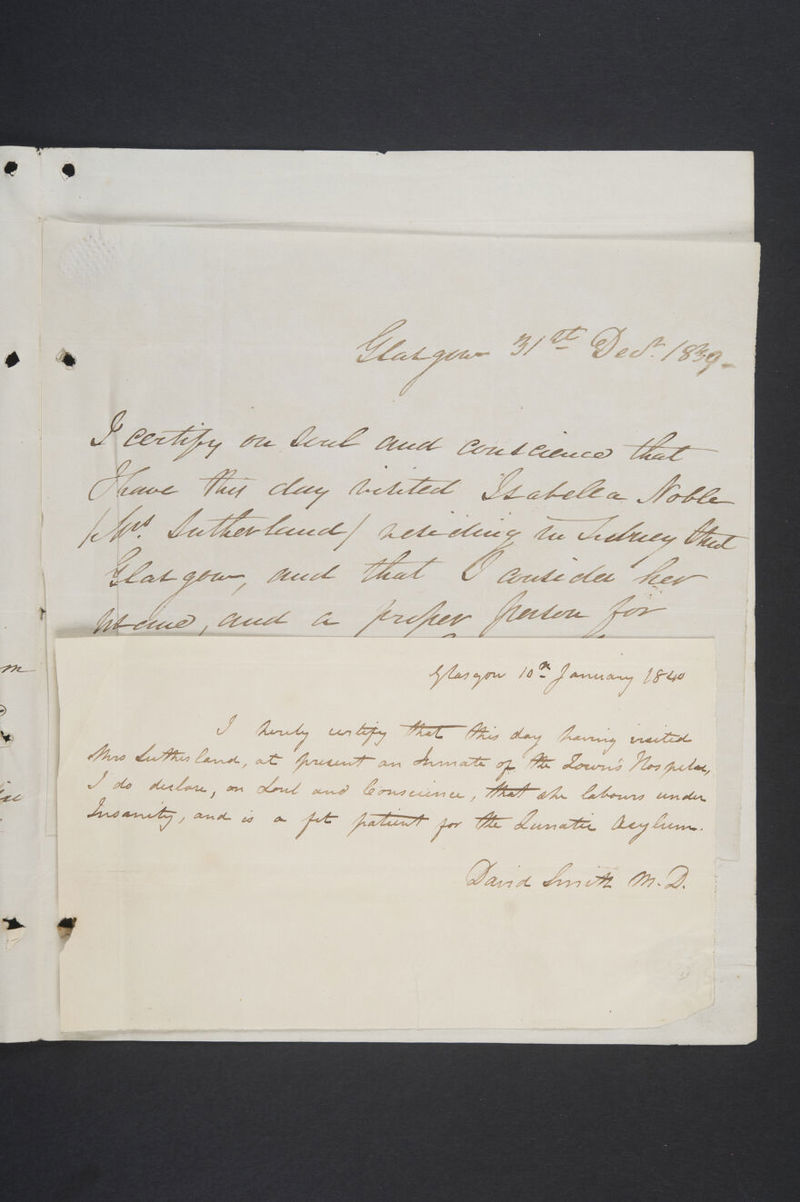 Glasgow 31st Decr. 1839-
I certify on Soul and conscience that
I have this day visited Isabella Noble
/Mrs. Sutherland/ residing in Sidney Street
Glasgow, and that I consider her
insane, and a proper person for
m
Glasgow 10th January 1840
I hereby certify that this day having visited
Mrs Sutherland, at present an Inmate of the Town's Hospital,
I do declare, on Soul and Conscience, that she labours under
Insanity, and is a fit patient for the Lunatic Asylum.
David Smith M.D.